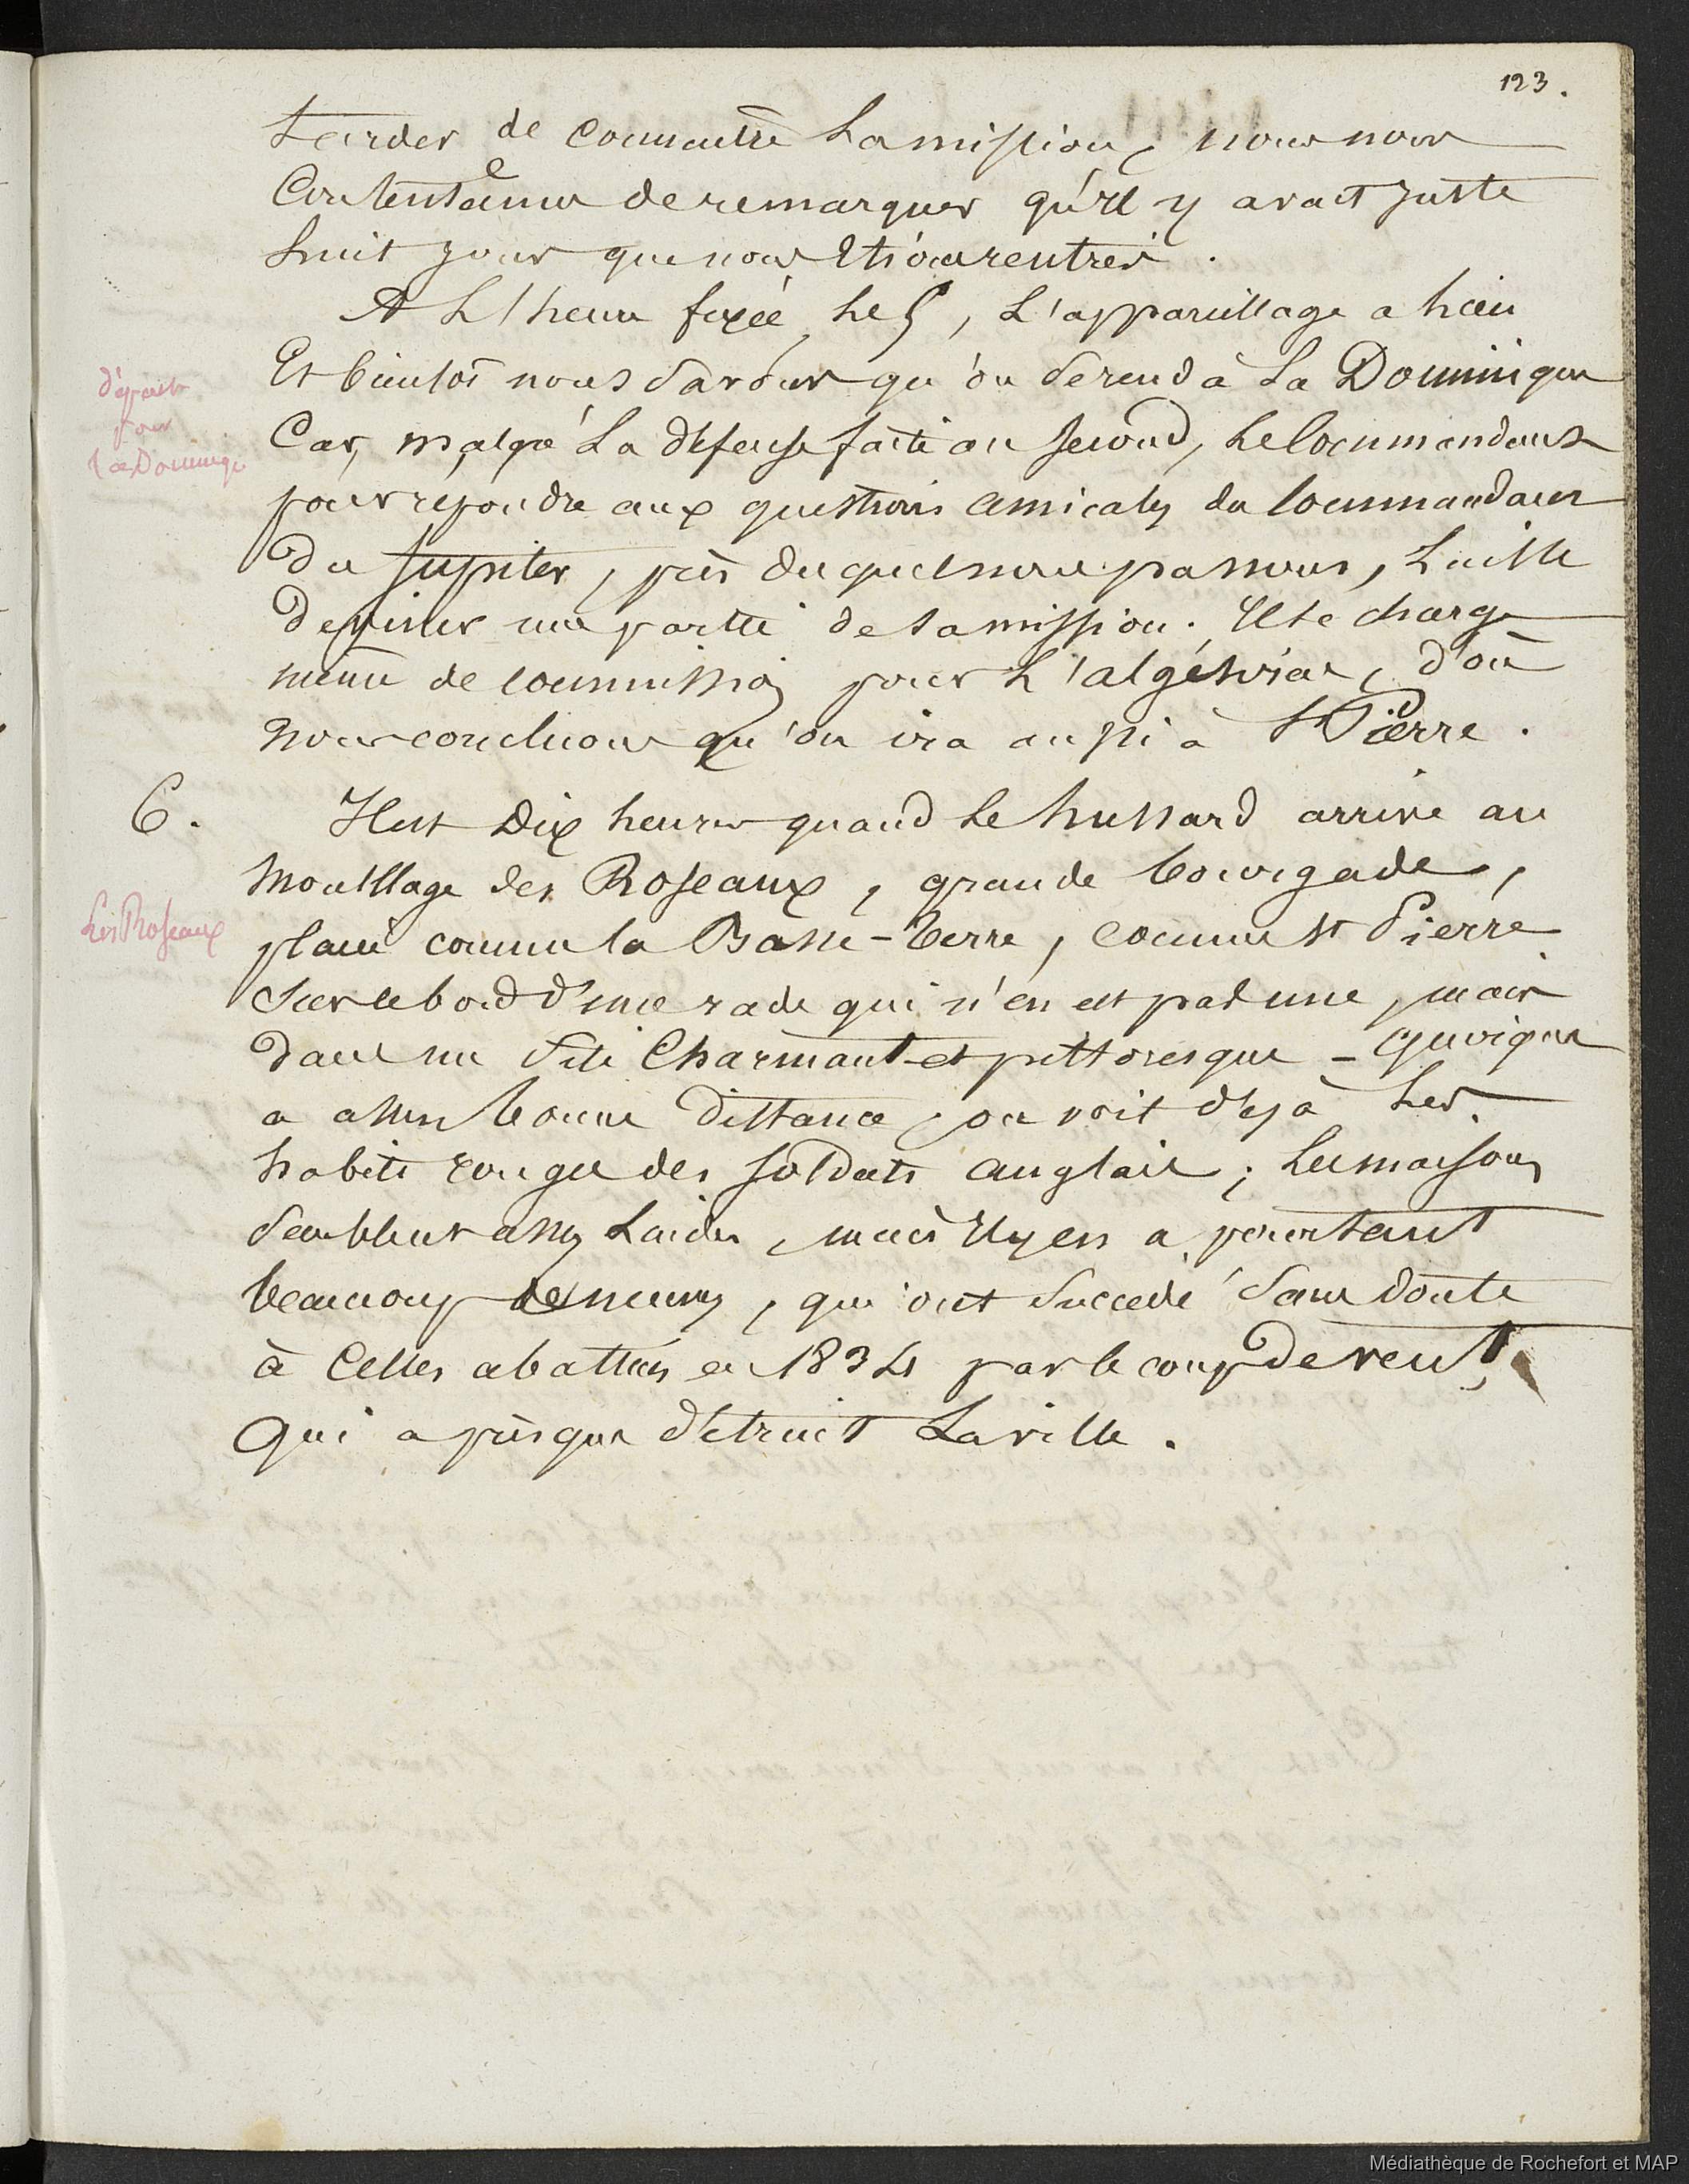 123.
tarder de connaitre la mission, nous nous
contentâmes de remarquer qu'il y avait juste
huit jours que nous étions rentrés.
A l'heure fixée, le 5, l'appareillage a lieu
Et bientôt nous savons qu'on se rend à la Dominique
départ
pour
la Dominique
Car, malgré la défense faite au second, le Commandant
pour répondre aux questions amicales du Commandant
Du Jupiter, près duquel nous passons, laisse
Deviner une partie de sa mission. Il se charge
même de commissions pour l'algésiras, d'où
nous concluons qu'on ira aussi à St Pierre.
6.
Il est Dix heures quand le hussard arrive au
mouillage des Roseaux, grande bourgade,
Les Roseaux
placée comme la Basse-terre, comme St Pierre
sur le bord d'une rade qui n'en est pas une, mais
dans un site Charmant et pittoresque - Quoique
a assez bonne distance, on voit déjà les
habits rouges des soldats anglais; les maisons
semblent assez laides, mais il y en a pourtant
beaucoup de neuves, qui ont succédé sans doute
à Celles abattues en 1834 par le coup de vent,
Qui a presque détruit la ville.
Médiathèque de Rochefort et MAP